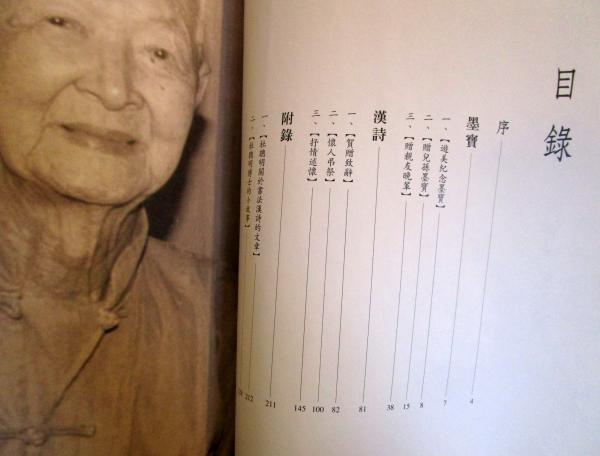 目錄
序 4
墨寶 7
一、【遊美紀念墨寶】 8
二、【贈兒孫墨寶】 15
三、【贈親友晚輩】 38
漢詩 81
一、【賀贈致辭】 82
二、【懷人弔祭】 100
三、【抒情述懷】 145
附錄 211
一、【杜聰明關於書法漢詩的文章】 212
二、【杜聰明博士的小故事】